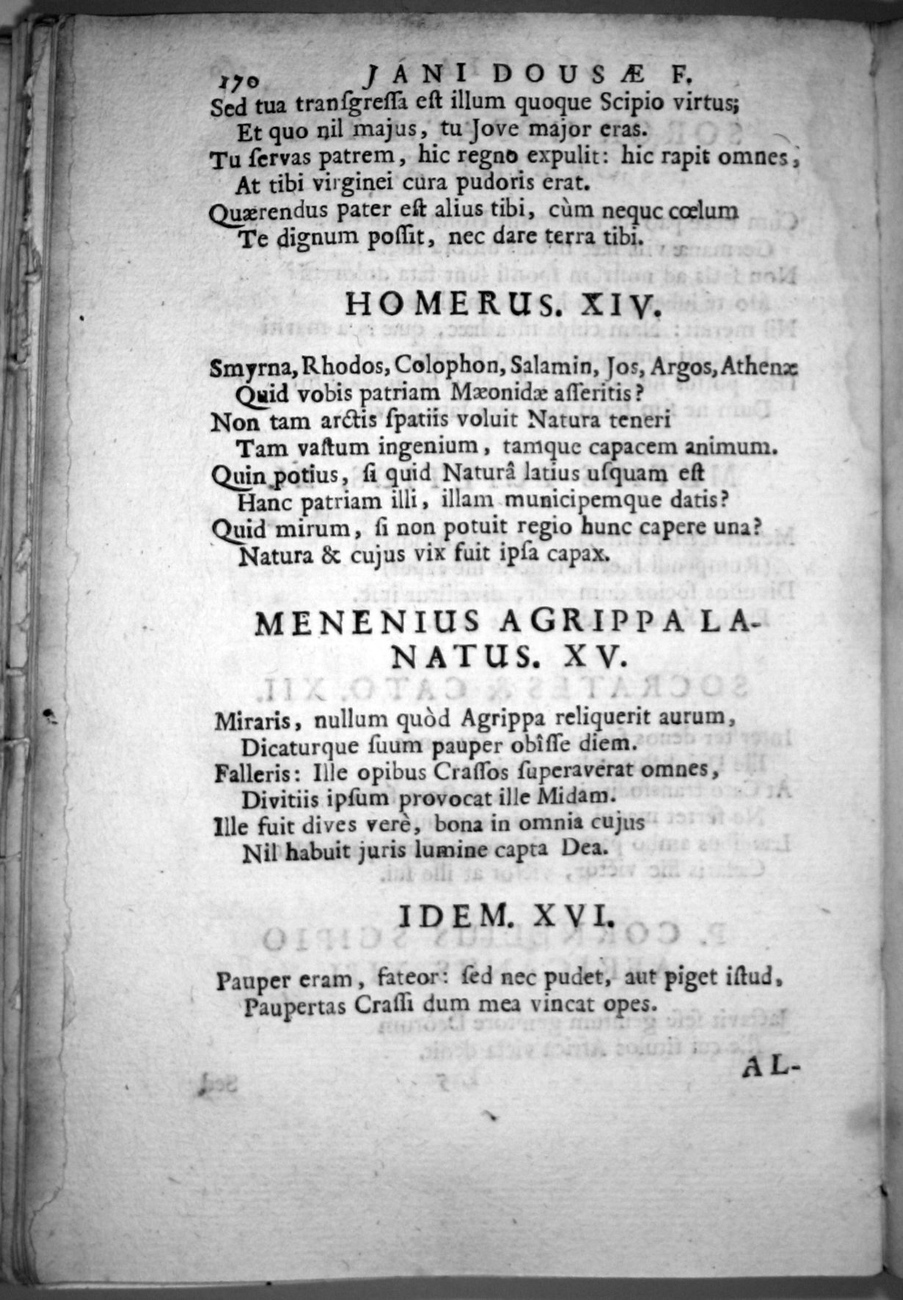 170 JANI DOUSÆ F.
Sed tua tranſgreſſa eſt illum quoque Scipio virtus;
Et quo nil majus, tu Jove major eras.
Tu ſervas patrem, hic regno expulit: hic rapit omnes,
At tibi virginei cura pudoris erat.
Quærendus pater eſt alius tibi, cùm nequc cœlum
Te dignum poſſit, nec dare terra tibi.
HOMERUS. XIV.
Smyrna, Rhodos, Colophon, Salamin, Jos, Argos, Athenæ
Quid vobis patriam Mæonidæ aſſeritis?
Non tam arctis ſpatiis voluit Natura teneri
Tam vaſtum ingenium, tamque capacem animum.
Quin potius, ſi quid Naturâ latius uſquam eſt
Hanc patriam illi, illam municipemque datis?
Quid mirum, ſi non potuit regio hunc capere una?
Natura & cujus vix fuit ipſa capax.
MENENIUS AGRIPPA LA-
NATUS. XV.
Miraris, nullum quòd Agrippa reliquerit aurum,
Dicaturque ſuum pauper obîſſe diem.
Falleris: Ille opibus Craſſos ſuperaverat omnes,
Divitiis ipſum provocat ille Midam.
Ille fuit dives verè, bona in omnia cujus
Nil habuit juris lumine capta Dea.
IDEM. XVI.
Pauper eram, fateor: ſed nec pudet, aut piget iſtud,
Paupertas Craſſi dum mea vincat opes.
AL-